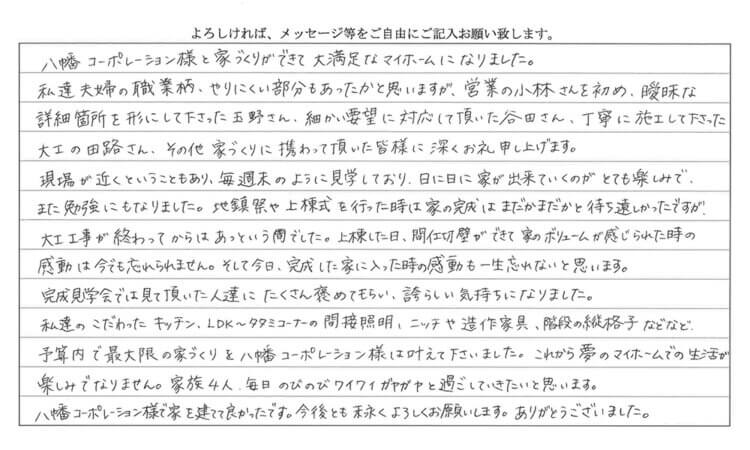 よろしければ、メッセージ等をご自由にご記入お願い致します。
八幡コーポレーション様と家づくりができて大満足なマイホームになりました。
私達夫婦の職業柄、やりにくい部分もあったかと思いますが、営業の小林さんを初め、曖昧な
詳細箇所を形にして下さった玉野さん、細かい要望に対応して頂いた谷田さん、丁寧に施工して下さった
大工の田路さん、その他家づくりに携わって頂いた皆様に深くお礼申し上げます。
現場が近くということもあり、毎週末のように見学しており、日に日に家が出来ていくのがとても楽しみで、
また勉強にもなりました。地鎮祭や上棟式を行った時は家の完成はまだかまだかと待ち遠しかったですが、
大工工事が終わってからはあっという間でした。上棟した日、間仕切壁ができて家のボリュームが感じられた時の
感動は今でも忘れられません。そして今日、完成した家に入った時の感動も一生忘れないと思います。
完成見学会では見て頂いた人達にたくさん褒めてもらい、誇らしい気持ちになりました。
私達のこだわったキッチン、LDK〜タタミコーナーの間接照明、ニッチや造作家具、階段の縦格子などなど、
予算内で最大限の家づくりを八幡コーポレーション様は叶えて下さいました。これから夢のマイホームでの生活が
楽しみでなりません。家族4人、毎日のびのびワイワイガヤガヤと過ごしていきたいと思います。
八幡コーポレーション様で家を建てて良かったです。今後とも末永くよろしくお願いします。ありがとうございました。